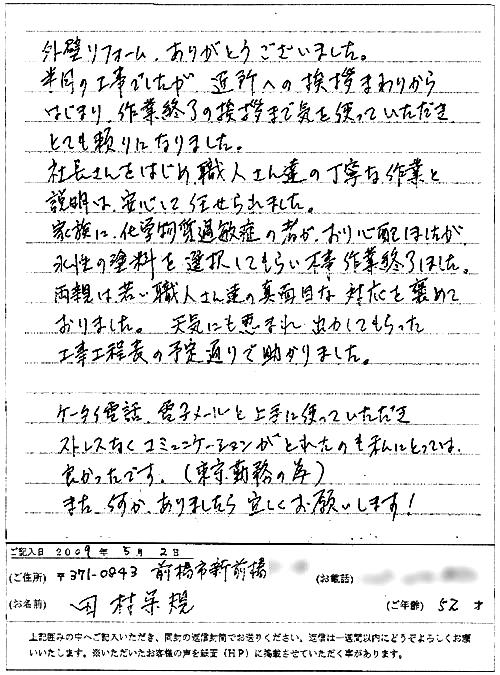 外壁リフォーム、ありがとうございました。
半月の工事でしたが、近所への挨拶まわりから
はじまり、作業終了の挨拶まで気を使っていただき
とても頼りになりました。
社長さんをはじめ、職人さん達の丁寧な作業と
説明は、安心して任せられました。
家族に、化学物質過敏症の者が、おり心配しましたが、
水性の塗料を選択してもらい無事作業終了しました。
両親は若い職人さん達の真面目な対応を褒めて
おりました。 天気にも恵まれ、出力してもらった
工事工程表の予定通りで助かりました。
ケータイ電話、電子メールと上手に使っていただき
ストレスなくコミュニケーションがとれたのも私にとっては、
良かったです。(東京勤務の為)
また、何か、ありましたら宜しくお願いします!
ご記入日 2009 年 5 月 2 日
(ご住所) 〒371-0843 前橋市新前橋 (お電話)
(お名前) 田村 規 (ご年齢) 52 才
上記囲みの中へご記入いただき、同封の返信封筒でお送りください。返信は一週間以内にどうぞよろしくお願
いいたします。※いただいたお客様の声を紙面(HP)に掲載させていただく事があります。